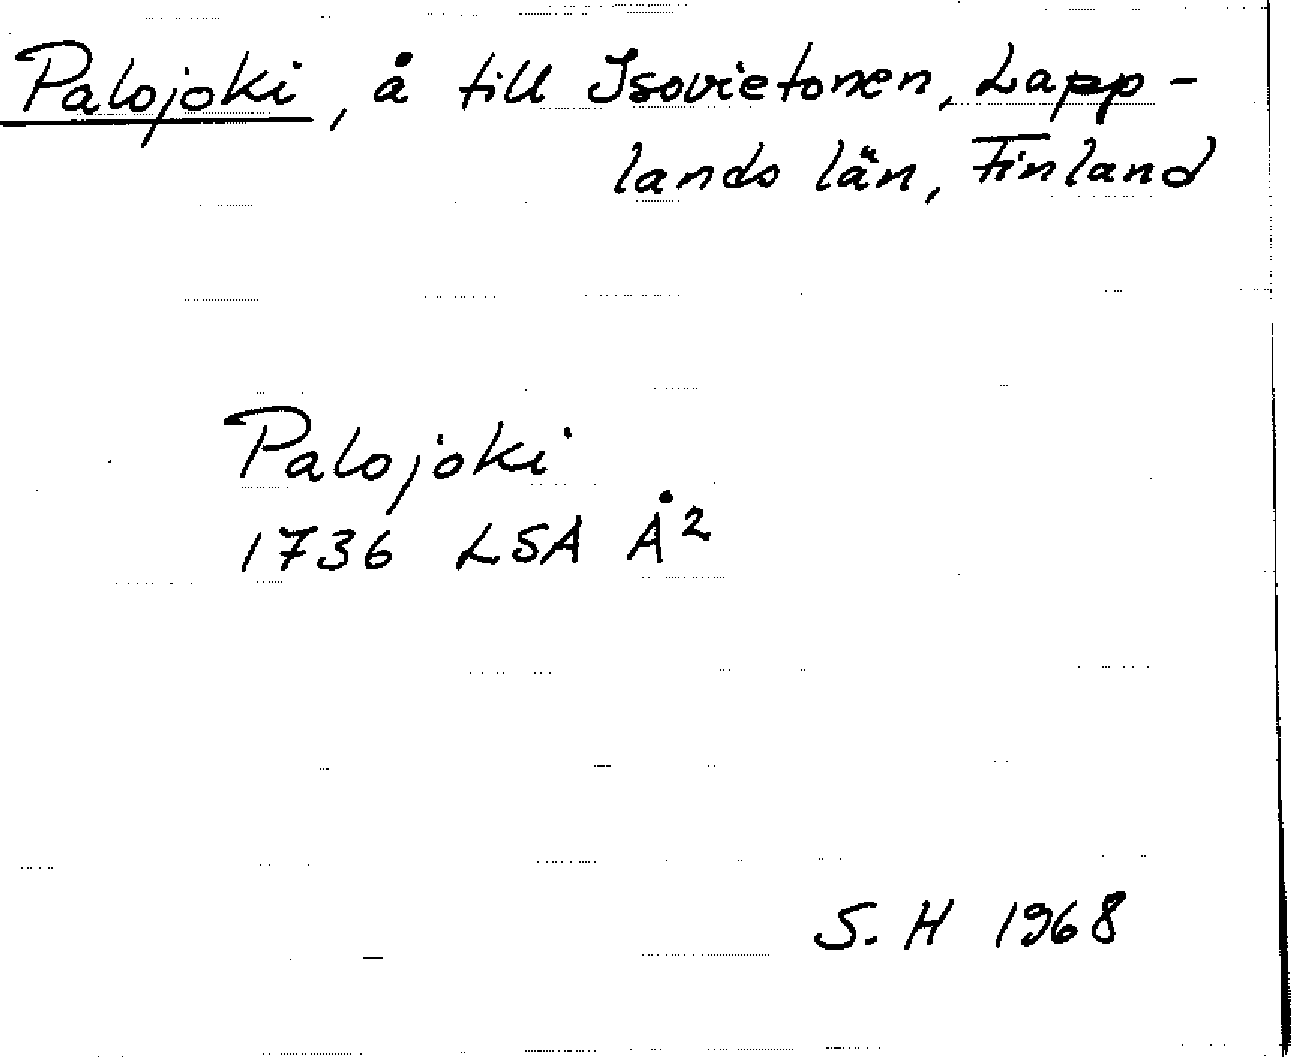 Palojoki, å till Isovietonen, Lapp-
lands län, Finland
Palojoki
1736 LSA Å²
S. H 1968